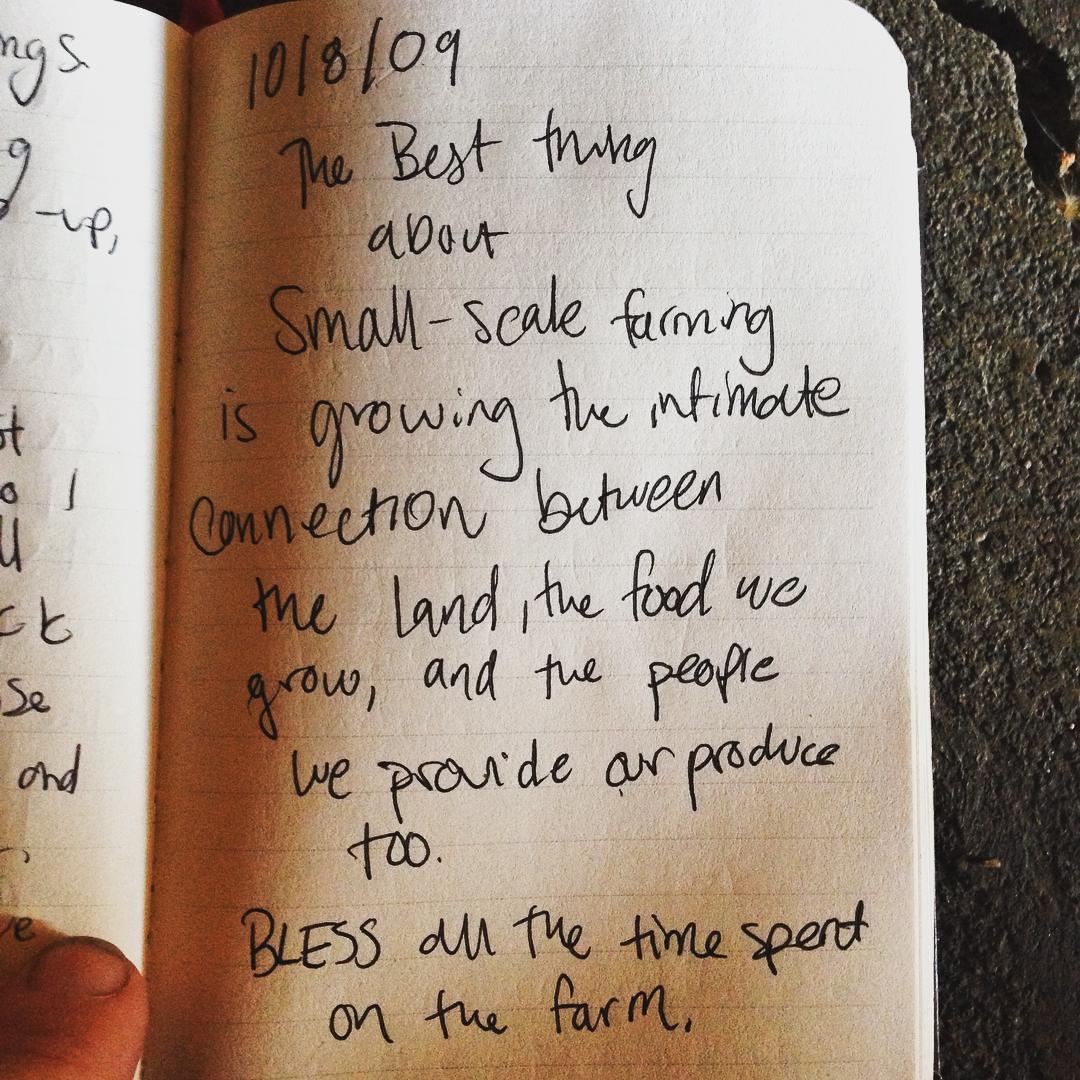 ngs
g
-up,
10/8/09
The Best thing
about
Small-scale farming
is growing the intimate
connection between
the land, the food we
grow, and the people
we provide our produce
too.
BLESS all the time spent
on the farm.
and